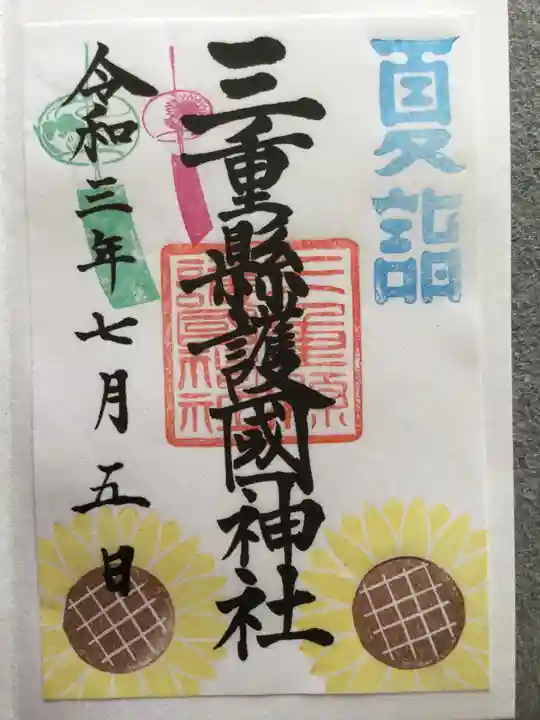 夏詣
三重縣護國神社
三重県護國神社
令和三年七月五日